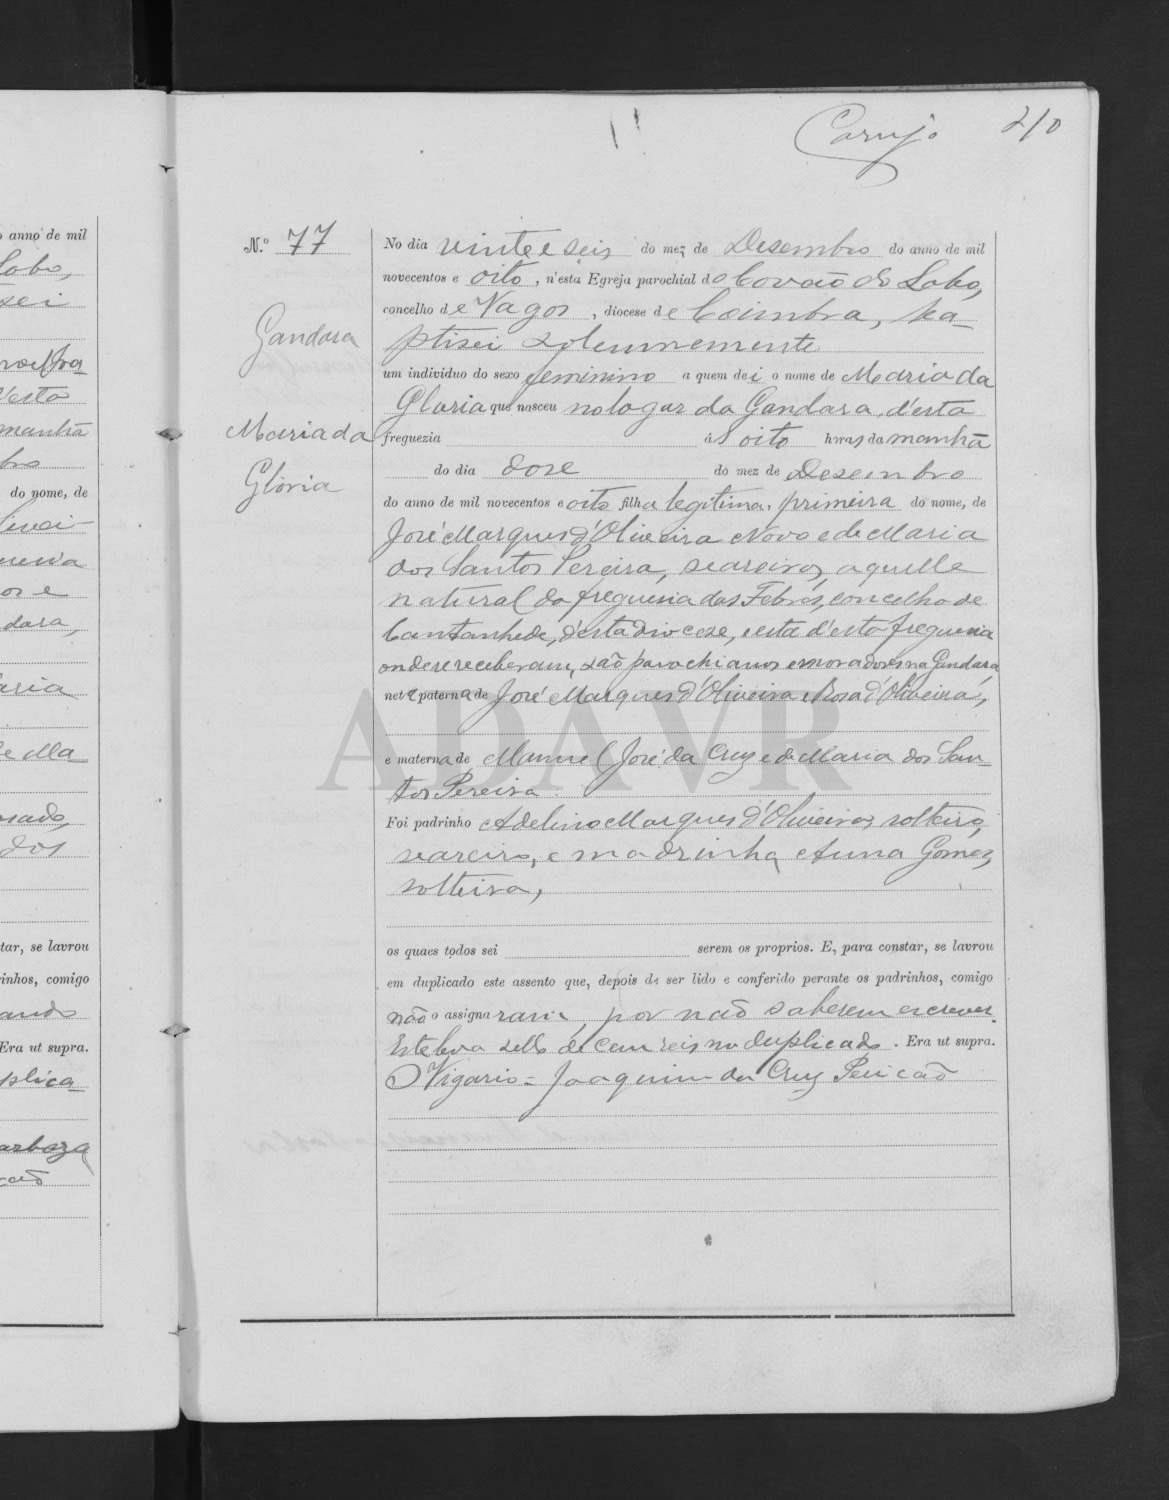 Carujo 210
o anno de mil
Lobo,
sei
Vesta
manhã
bro
do nome, de
or e
dara,
aria
de Ma
dos
tar, se lavrou
inhos, comigo
Era ut supra.
plica_
arboza
N.º 77
Gandara
Maria da
Gloria
No dia vinte e seis do mez de Desembro do anno de mil
novecentos e oito, n'esta Egreja parochial do Covão do Lobo,
concelho de Vagos, diocese de Coimbra, ba_
ptisei solemnemente
um individuo do sexo feminino a quem dei o nome de Maria da
Gloria que nasceu no logar da Gandara, d'esta
freguezia ás oito horas da manhã
do dia dose do mez de Desembro
do anno de mil novecentos e oito filha legitima, primeira do nome, de
José Marques d'Oliveira Novo e de Maria
dos Santos Pereira, seareiros, aquelle
natural da freguesia das Febres, concelho de
Cantanhede, d'esta diocese, e esta d'esta freguesia
onde se receberam, são parochianos e moradores na Gandara
neta paterna de José Marques d'Oliveira e Rosa d'Oliveira,
ADAVR
e materna de Manuel José da Cruz e de Maria dos San_
tos Pereira.
Foi padrinho Adelino Marques d'Oliveira, solteiro,
seareiro, e madrinha Anna Gomes,
solteira,
os quaes todos sei serem os proprios. E, para constar, se lavrou
em duplicado este assento que, depois de ser lido e conferido perante os padrinhos, comigo
não o assignaram, por não saberem escrever.
Esteleva sello de cem reis no duplicado. Era ut supra.
O Vigario = Joaquim da Cruz Pericão